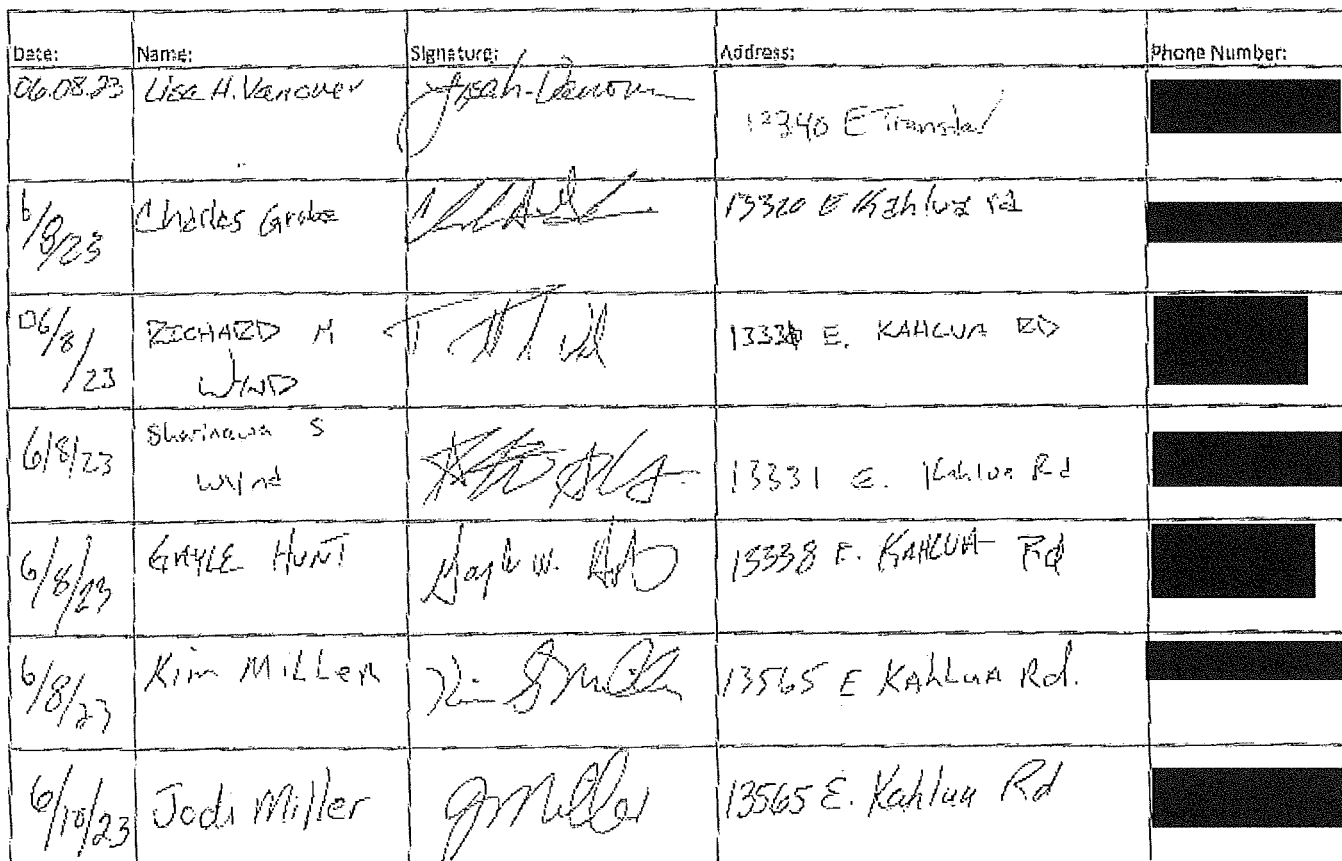 Date: Name: Signature: Address: Phone Number:
06.08.23 Lisa H. Vanover 12340 E Transtar
6/8/23 Charles 13320 E Kahlua rd
06/8/23 RICHARD M WYND E. KAHLUA RD
6/8/23 S Wynd 13331 E. Kahlua Rd
6/8/23 GAYLE HUNT Gayle W. Hunt 13338 E. KAHLUA Rd
6/8/23 Kim MiLLER Kim Miller 13565 E KAhLuA Rd.
6/10/23 Jodi Miller JMiller 13565 E. Kahlua Rd